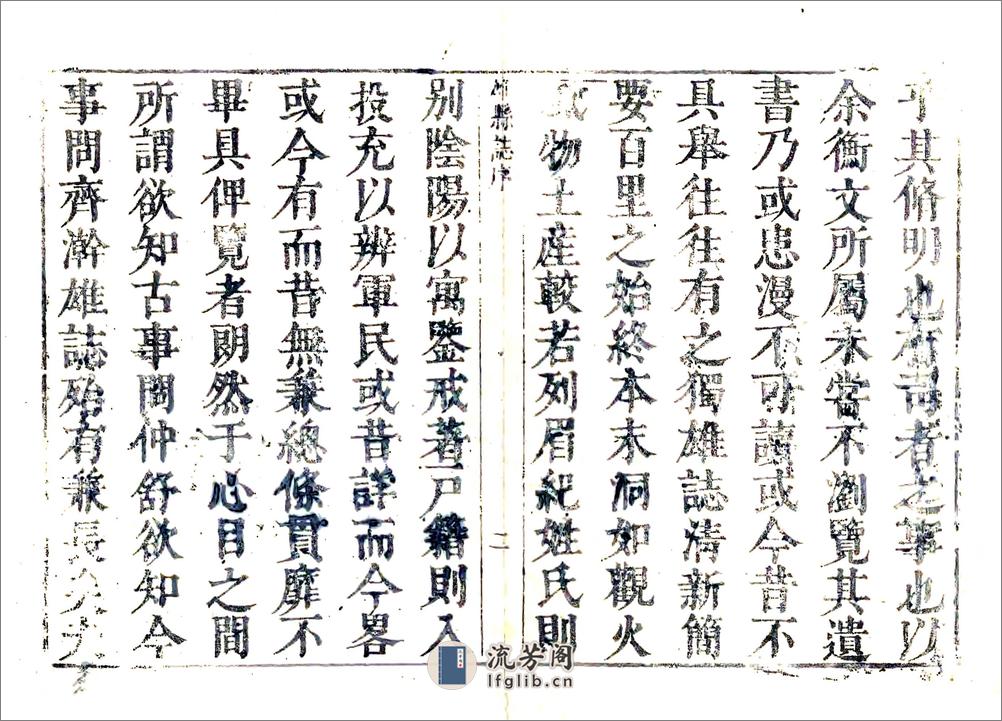 其脩明也有司者之事也以
余衡文所屬未嘗不瀏覽其遺
書乃或患漫不可讀或今昔不
具舉往往有之獨雄誌淸新簡
要百里之始終本末洞如觀火
物土産較若列眉紀姓氏則
縣誌序
二
别陰陽以寓鑒戒著戸籍則入
投充以辨軍民或昔詳而今畧
或今有而昔無兼總條貫靡不
畢具俾覽者朗然于心目之間
所謂欲知古事問仲舒欲知今
事問齊澣雄誌殆有兼長
流芳阁
lfglib.cn